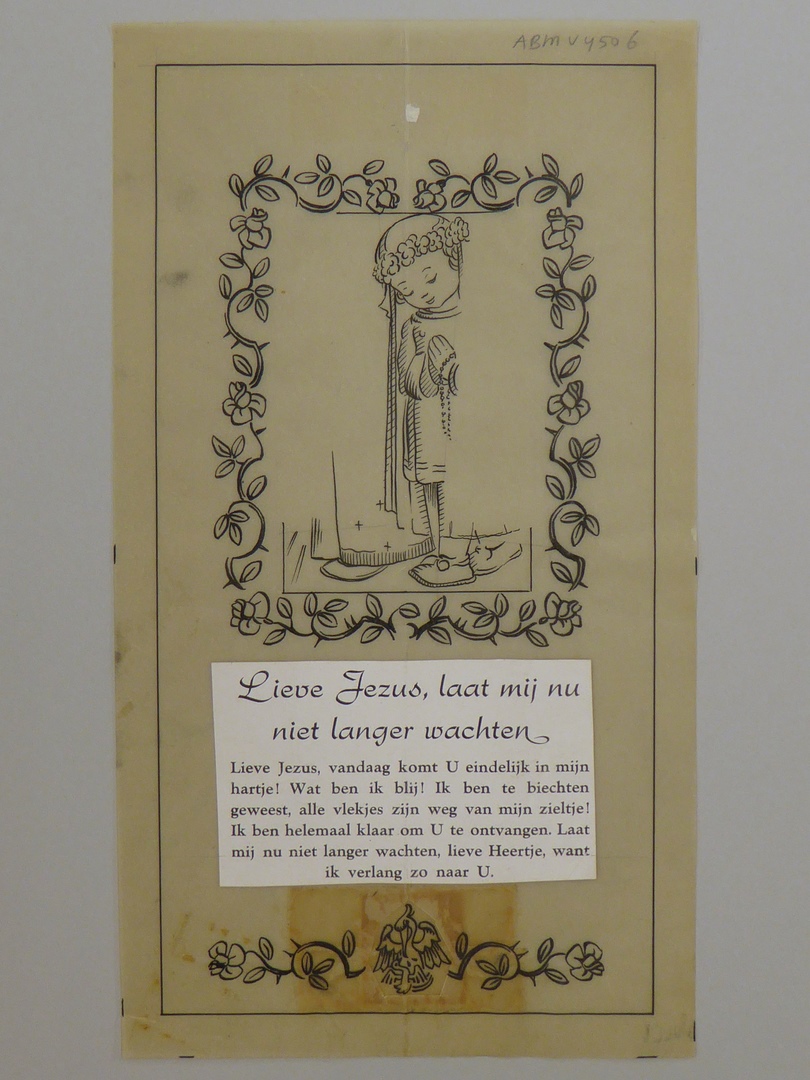 ABM V 4506
Lieve Jezus, laat mij nu
niet langer wachten
Lieve Jezus, vandaag komt U eindelijk in mijn
hartje! Wat ben ik blij! Ik ben te biechten
geweest, alle vlekjes zijn weg van mijn zieltje!
Ik ben helemaal klaar om U te ontvangen. Laat
mij nu niet langer wachten, lieve Heertje, want
ik verlang zo naar U.